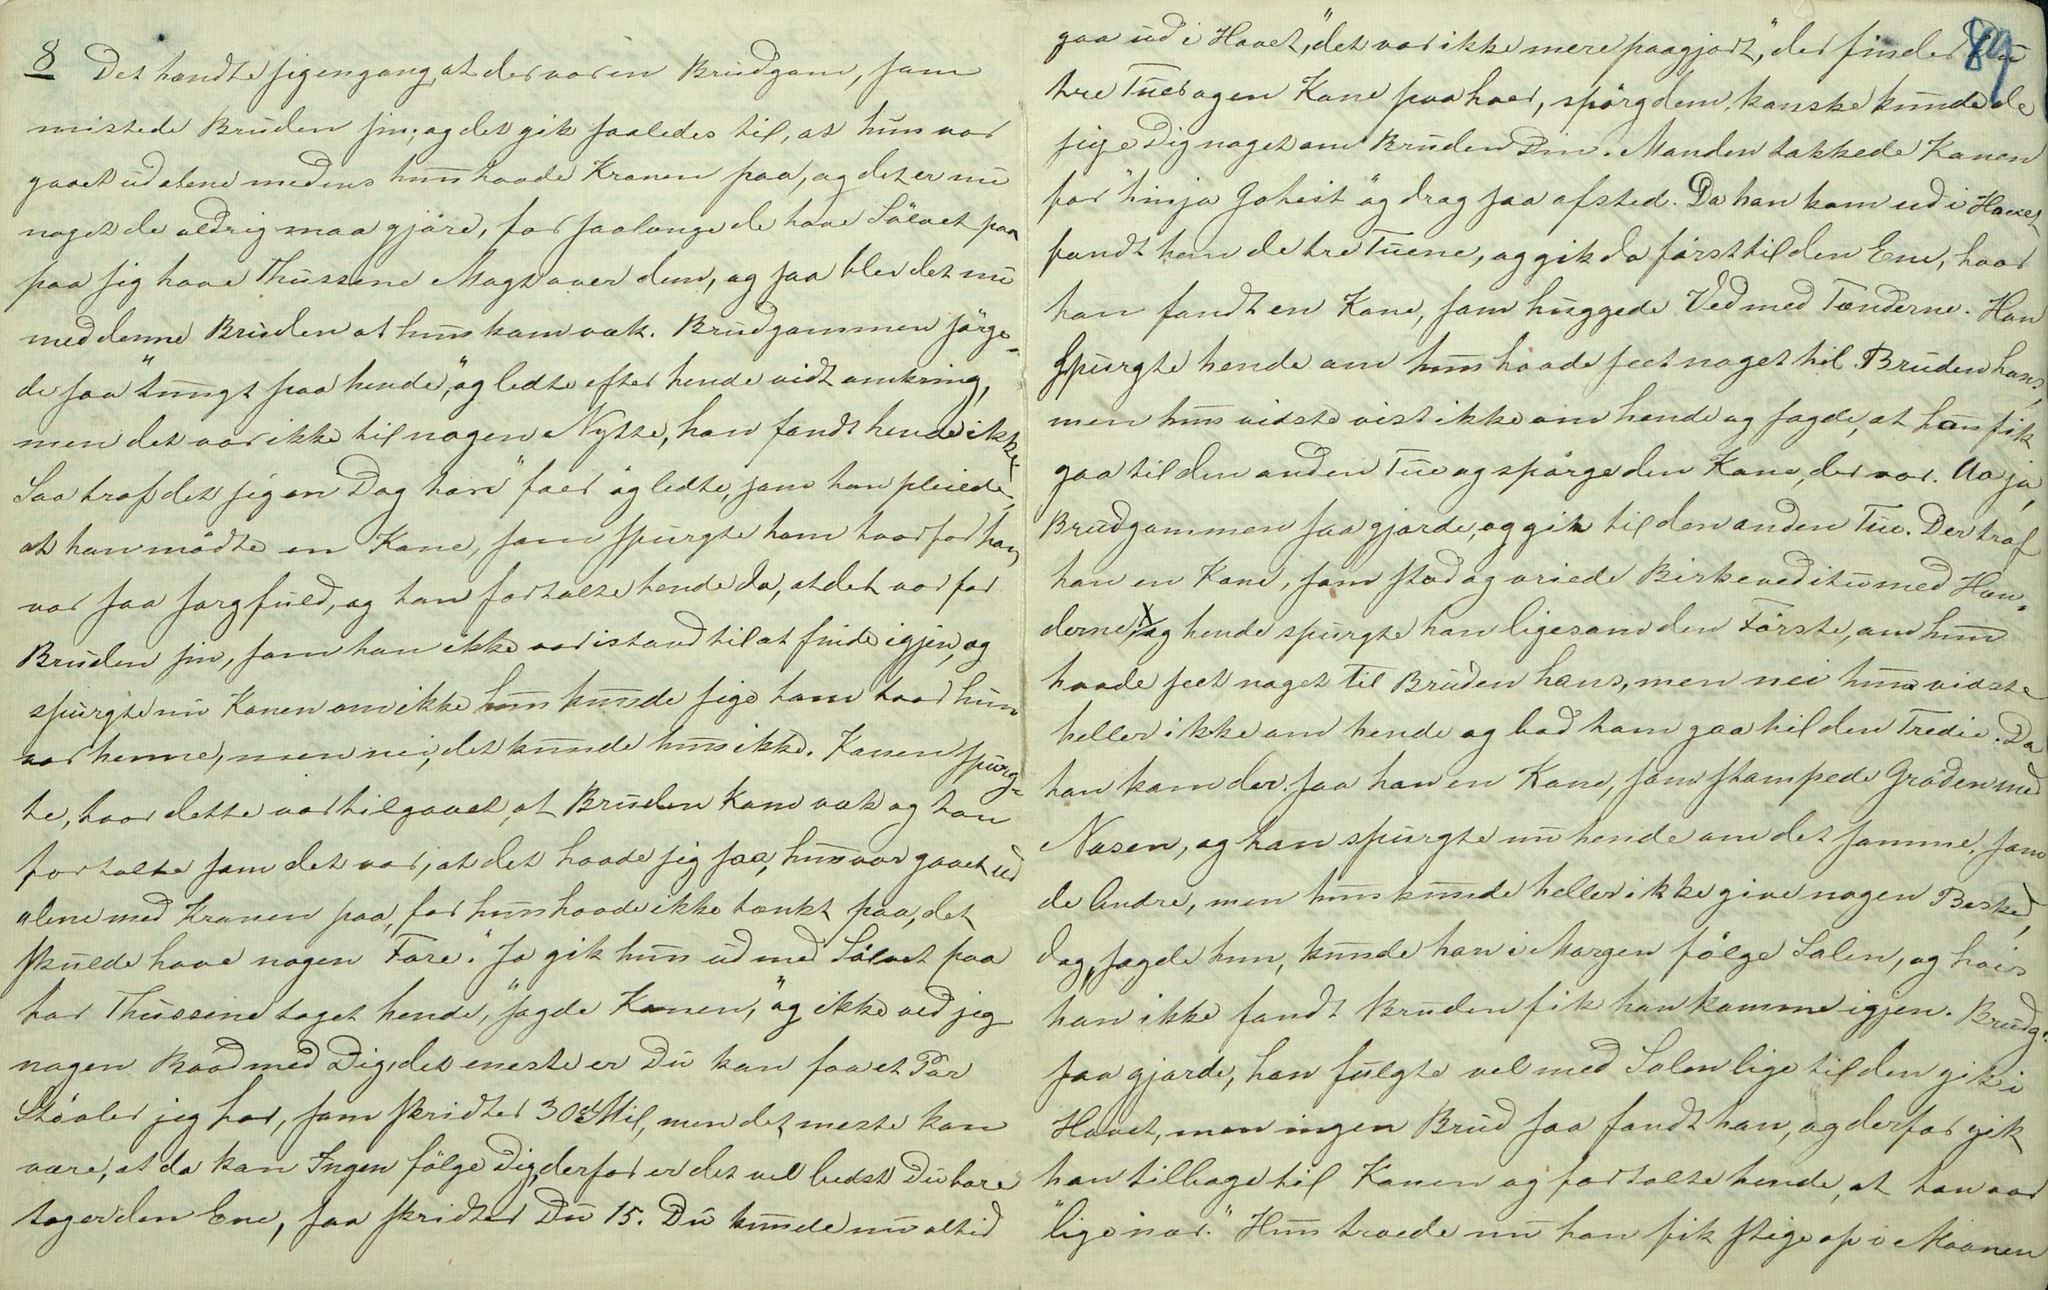 8 Det hændte sig engang, at der var en Brudgom, som
mistede Bruden sin; og det gik saaledes til, at hun var
gaaet ud alene medens hun havde Kronen paa, og det er nu
noget de aldrig maa gjøre, for saalænge de have Sølvet paa
paa sig have Thussene Magt over dem, og saa blev det nu
med denne Bruden at hun kom væk. Brudgommen sørge-
de saa "tungt paa hende," og ledte efter hende vidt omkring,
men det var ikke til nogen Nytte, han fandt hende ikke.
Saa traf det sig en Dag han "faer" og ledte, som han pleiede,
at han mødte en Kone, som spurgte ham hvorfor han
var saa sorgfuld, og han fortalte hende da, at det var for
Bruden sin, som han ikke var istand til at finde igjen, og
spurgte nu Konen om ikke hun kunde sige ham hvor hun
var henne, men nei, det kunde hun ikke. Konen spurg-
te, hvor dette var tilgaaet, at Bruden kom væk og han
fortalte som det var, at det havde sig saa, hun var gaaet ud
alene med Kronen paa, for hun havde ikke tænkt paa, det
skulde have nogen Fare. "Ja gik hun ud med Sølvet paa
har Thussene taget hende," sagde Konen, "og ikke ved jeg
nogen Raad med Dig, det eneste er Du kan faa et Par
Støvler jeg har, som skridter 30 Mil, men det meste kan
være, at da kan Ingen følge Dig, derfor er det vel bedst Du bare
tager den Ene, saa skridter Du 15. Du kunde nu altid
89
gaa ud i Havet," det var ikke mere paagjort, "der finder Du
tre Tuer og en Kone paa hver, spørg dem, kanske kunde de
sige Dig noget om Bruden Din. Manden takkede Konen
for "hinja Goheit" og drog saa afsted. Da han kom ud i Havet
fandt han de tre Tuene, og gik da først til den Ene, hvor
han fandt en Kone, som huggede Ved med Tænderne. Han
spurgte hende om hun havde seet noget til Bruden hans,
men hun vidste vist ikke om hende og sagde, at han fik
gaa til den anden Tue og spørge den Kone, der var. Aa ja,
Brudgommen saa gjorde, og gik til den anden Tue. Der traf
han en Kone, som stod og vriede Birkeved itu med Hæn-
derne, og hende spurgte han ligesom den Første, om hun
havde seet noget til Bruden hans, men nei hun vidste
heller ikke om hende og bad ham gaa til den Tredie. Da
han kom der, saa han en Kone, som stampede Grøden med
Næsen, og han spurgte nu hende om det samme, som
de Andre, men hun kunde heller ikke give nogen Besked,
dog, sagde hun, kunde han i Morgen følge Solen, og hvis
han ikke fandt Bruden fik han komme igjen. Brudg.
saa gjorde, han fulgte vel med Solen lige til den gik i
Havet, men ingen Brud saa fandt han, og derfor gik
han tilbage til Konen og fortalte hende, at han var
"lige nær." Hun troede nu han fik stige op i Maanen